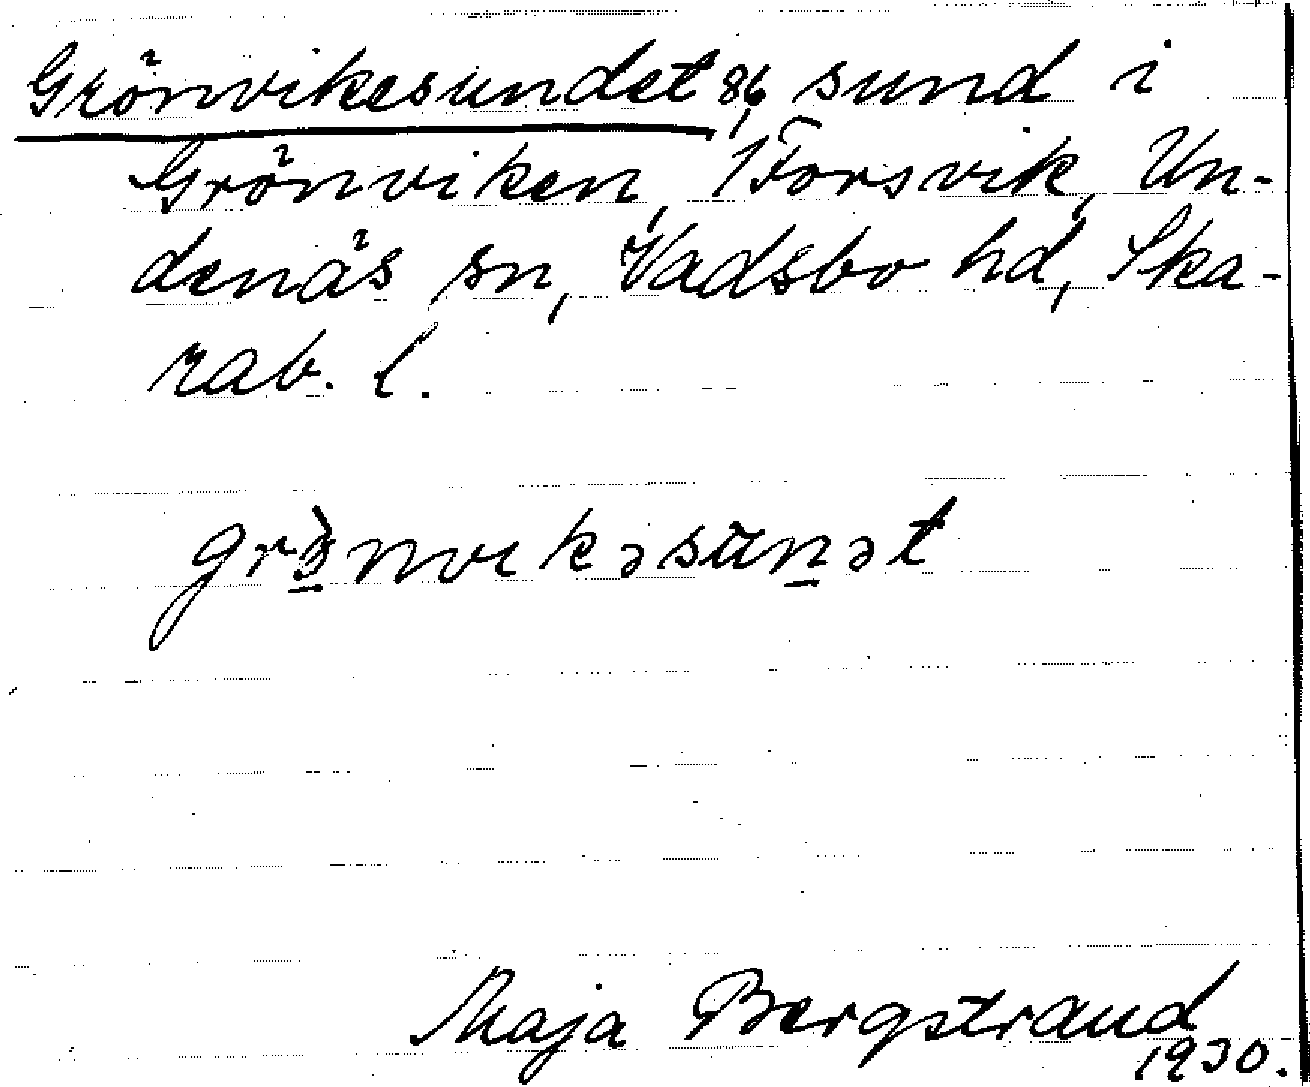 Grönvikesundet 86, sund i
Grönviken, 1 Forsvik, Un-
denäs sn, Vadsbo hd, Ska-
rab. l.
Maja Bergstrand
1930.